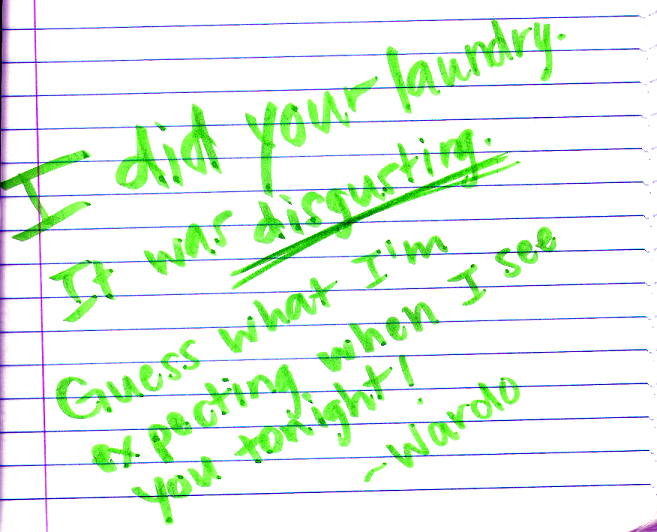 I did your laundry.
It was disgusting.
Guess what I'm
expecting when I see
you tonight!
~Wardo